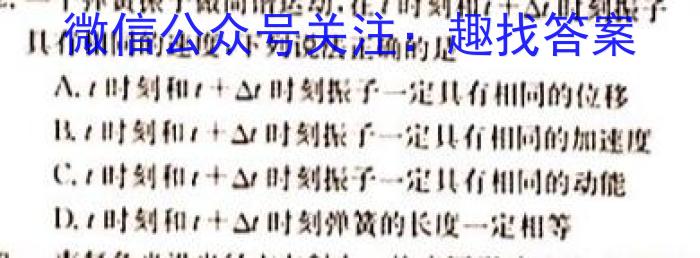 一个弹簧振子做简谐运动,在t时刻和t+Δt时刻振子
具有相同的速度,下列说法正确的是
微信公众号关注:趣找答案
A. t时刻和t+Δt时刻振子一定具有相同的位移
B. t时刻和t+Δt时刻振子一定具有相同的加速度
C. t时刻和t+Δt时刻振子一定具有相同的动能
D. t时刻和t+Δt时刻弹簧的长度一定相等